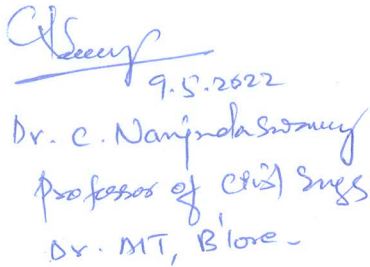 9.5.2022
Dr. C. Nanjundaswamy
Professor of Civil Engg
Dr. AIT, B'lore-